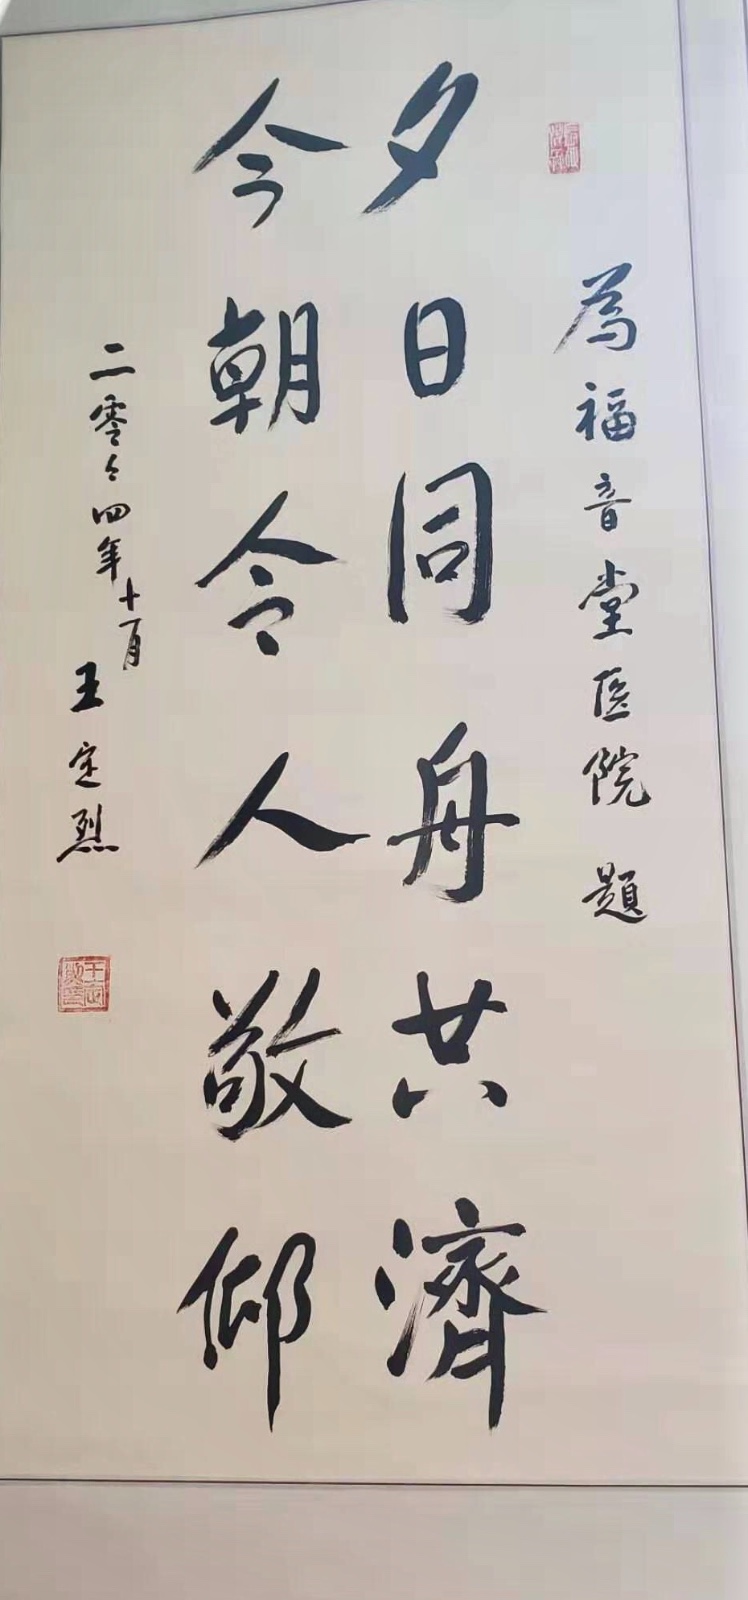 為福音堂医院 題
夕日同舟共濟
今朝令人敬仰
二零々四年十月
王定烈